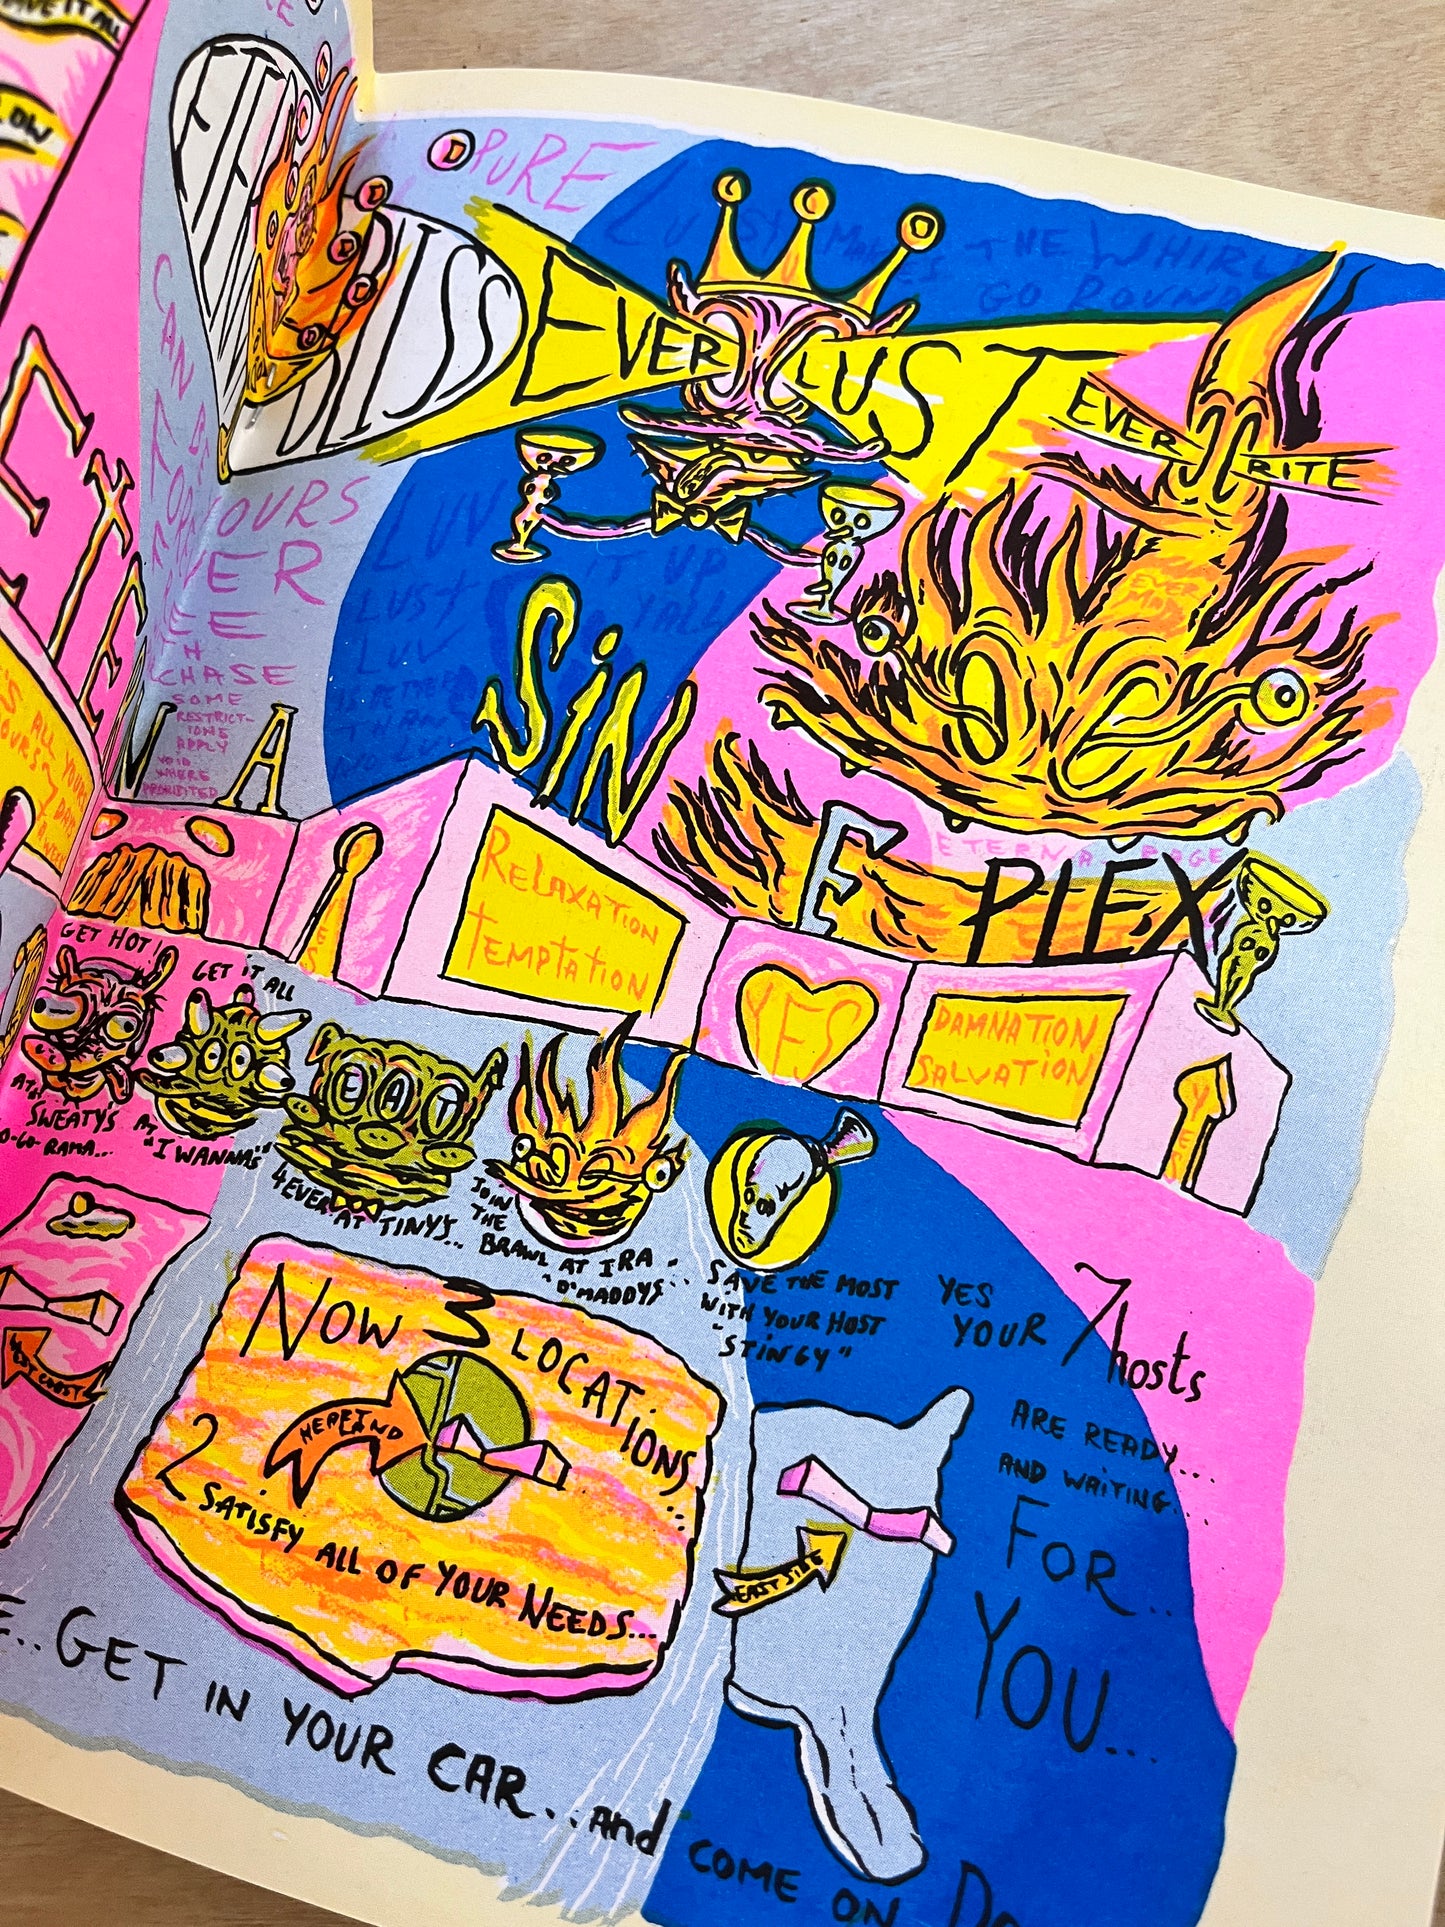 PURE
ETERNAL
BLISS
EVER
LUST
EVER
RITE
LUSTY MAKES THE WHIRLY
GO ROUND
CAN BE
YOURS
EVER
FREE
CHASE
SOME
RESTRICT-
IONS
APPLY
VOID
WHERE
PROHIBITED
LUV IT UP
LUST YALL
LUV
IS BETTER
THAN
EVER
MAD
SIN
E
PLEX
ETERNAL RAGE
RELAXATION
TEMPTATION
YES
DAMNATION
SALVATION
YES
YES
ALL
YOURS
7 DAYS
GET HOT!
AT
SWEATY'S
GO-GO-RAMA...
GET IT ALL
AT
"I WANNAS"
EAT
4EVER AT TINY'S...
JOIN
THE
BRAWL AT IRA
"D"MADDYS...
SAVE THE MOST
WITH YOUR HOST
"STINGY"
YES
YOUR 7 hosts
ARE READY...
AND WAITING...
FOR..
YOU...
NOW 3 LOCATIONS...
2 SATISFY ALL OF YOUR NEEDS...
HEARTLAND
WEST COAST
EAST SIDE
GET IN YOUR CAR...and COME ON